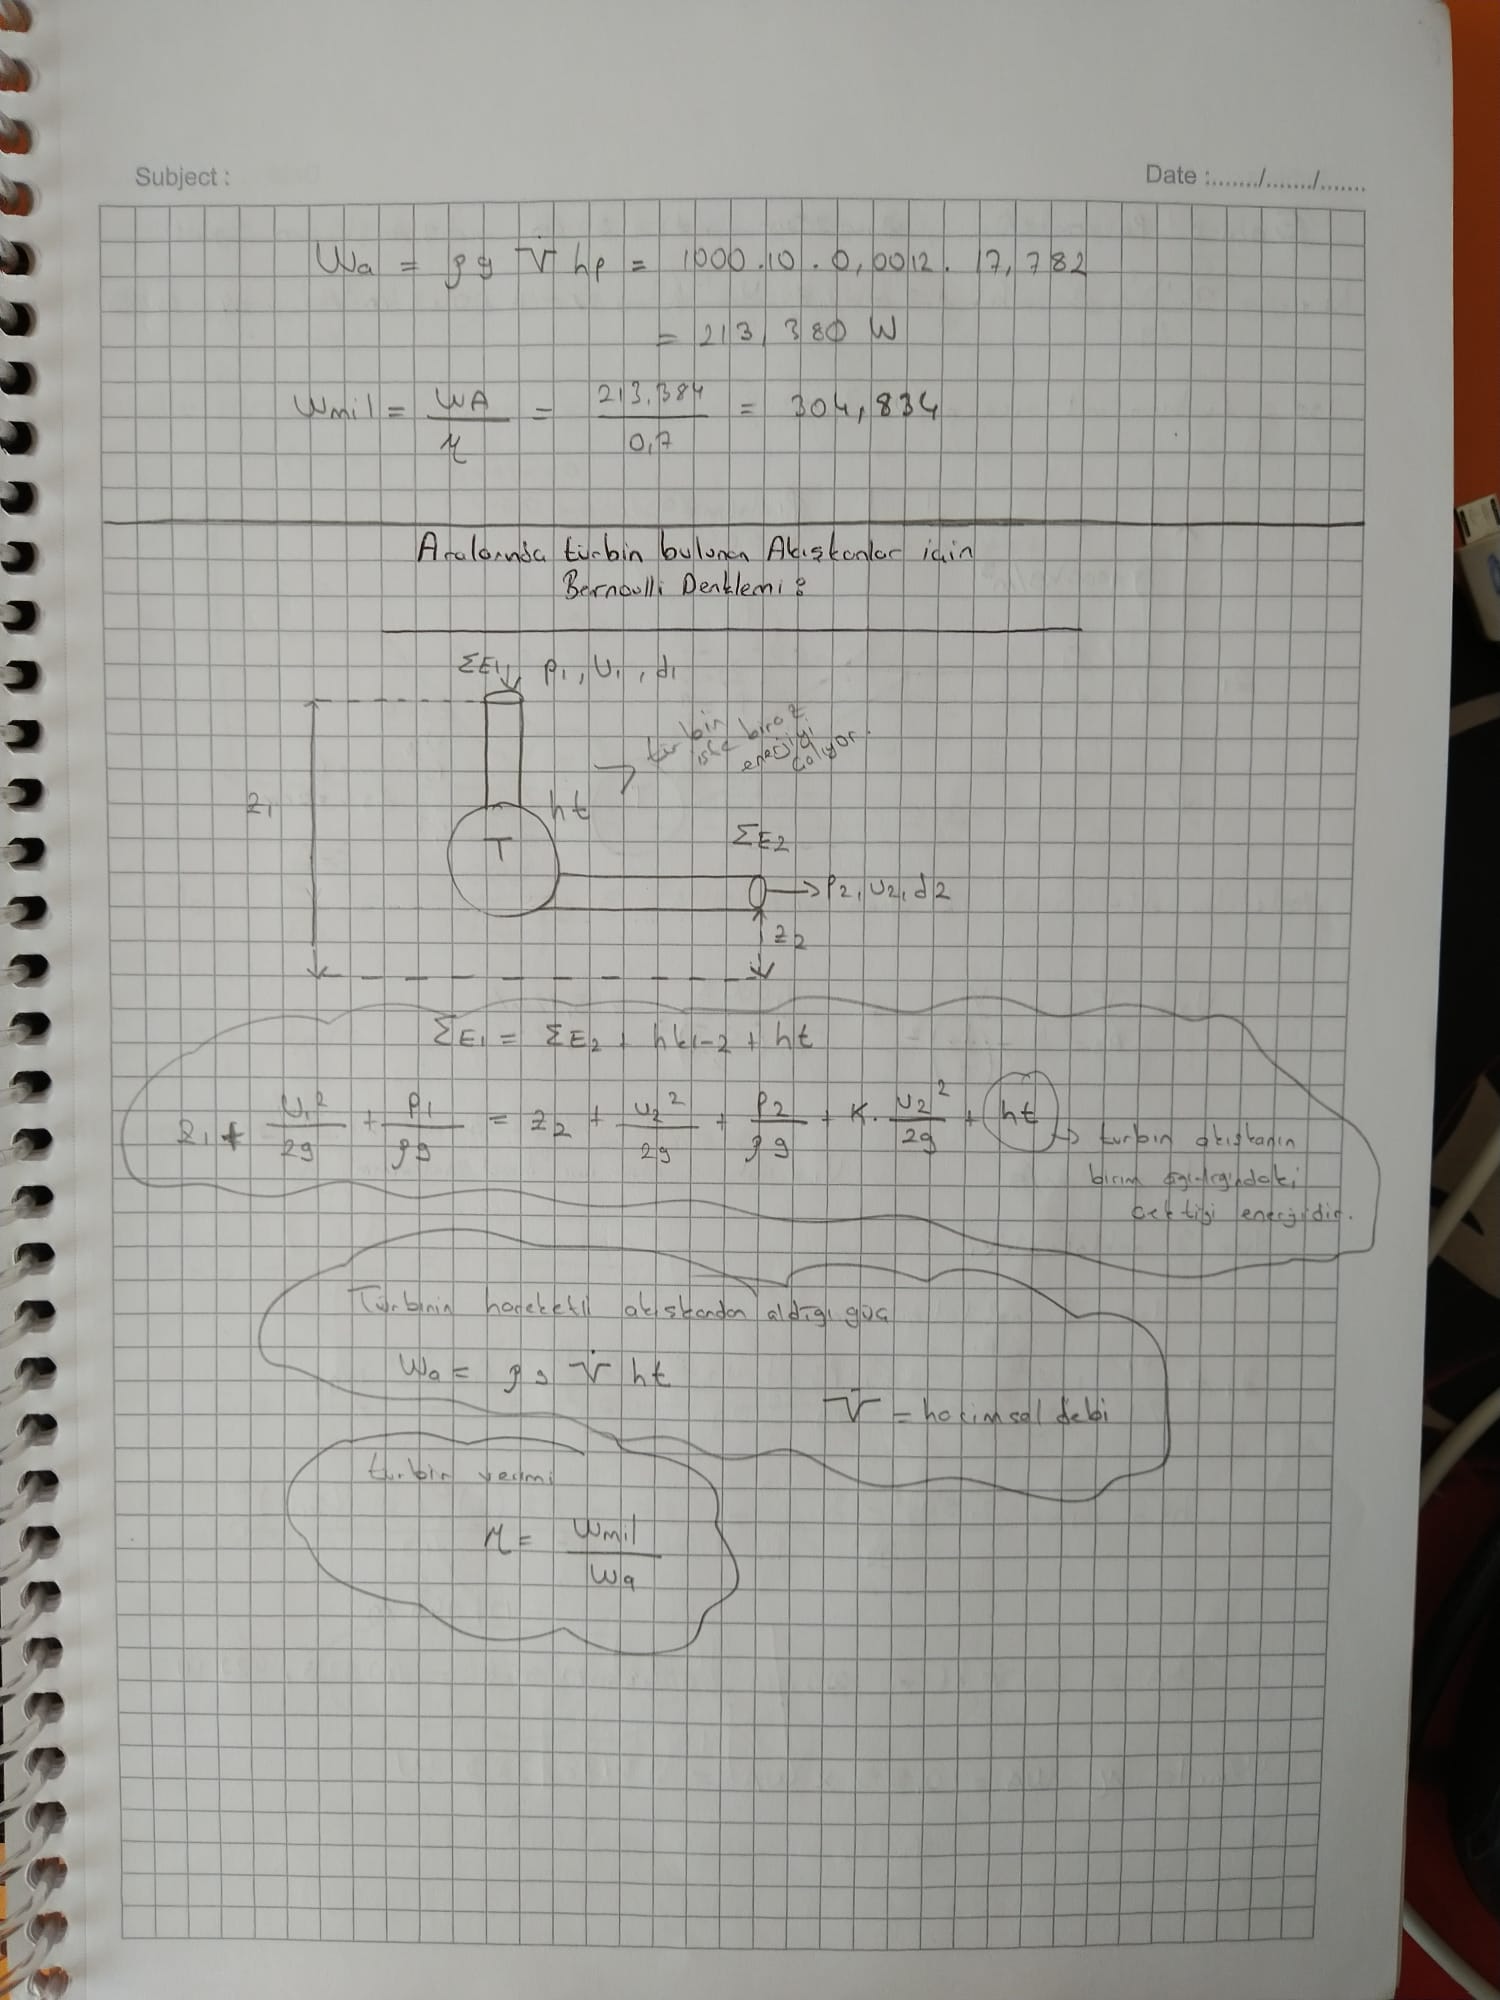 Subject :
Date :......./......./.......
Wa = ρg V̇ hp = 1000.10.0,0012.17,782
= 213,380 W
Wmil = WA / η = 213,384 / 0,7 = 304,834
Aralarında türbin bulunan Akışkanlar için
Bernoulli Denklemi :
ΣE1 P1, U1, d1
türbin biraz
ise enerjiyi
çalıyor.
z1
ht
T
ΣE2
P2, U2, d2
z2
ΣE1 = ΣE2 + hk1-2 + ht
z1 + U1²/2g + P1/ρg = z2 + U2²/2g + P2/ρg + K. U2²/2g + ht → turbin akışkanın
birim ağırlığındaki
çektiği enerjidir.
Türbinin hareketli akışkandan aldığı güç
Wa = ρg V̇ ht
V̇ = hacimsal debi
turbin verimi
η = Wmil / Wa